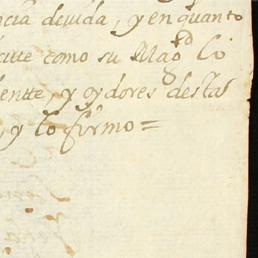 ncia deuida, y en quanto
cute como su Mag.d lo
dentte, y oydores destas
, y lo firmo =